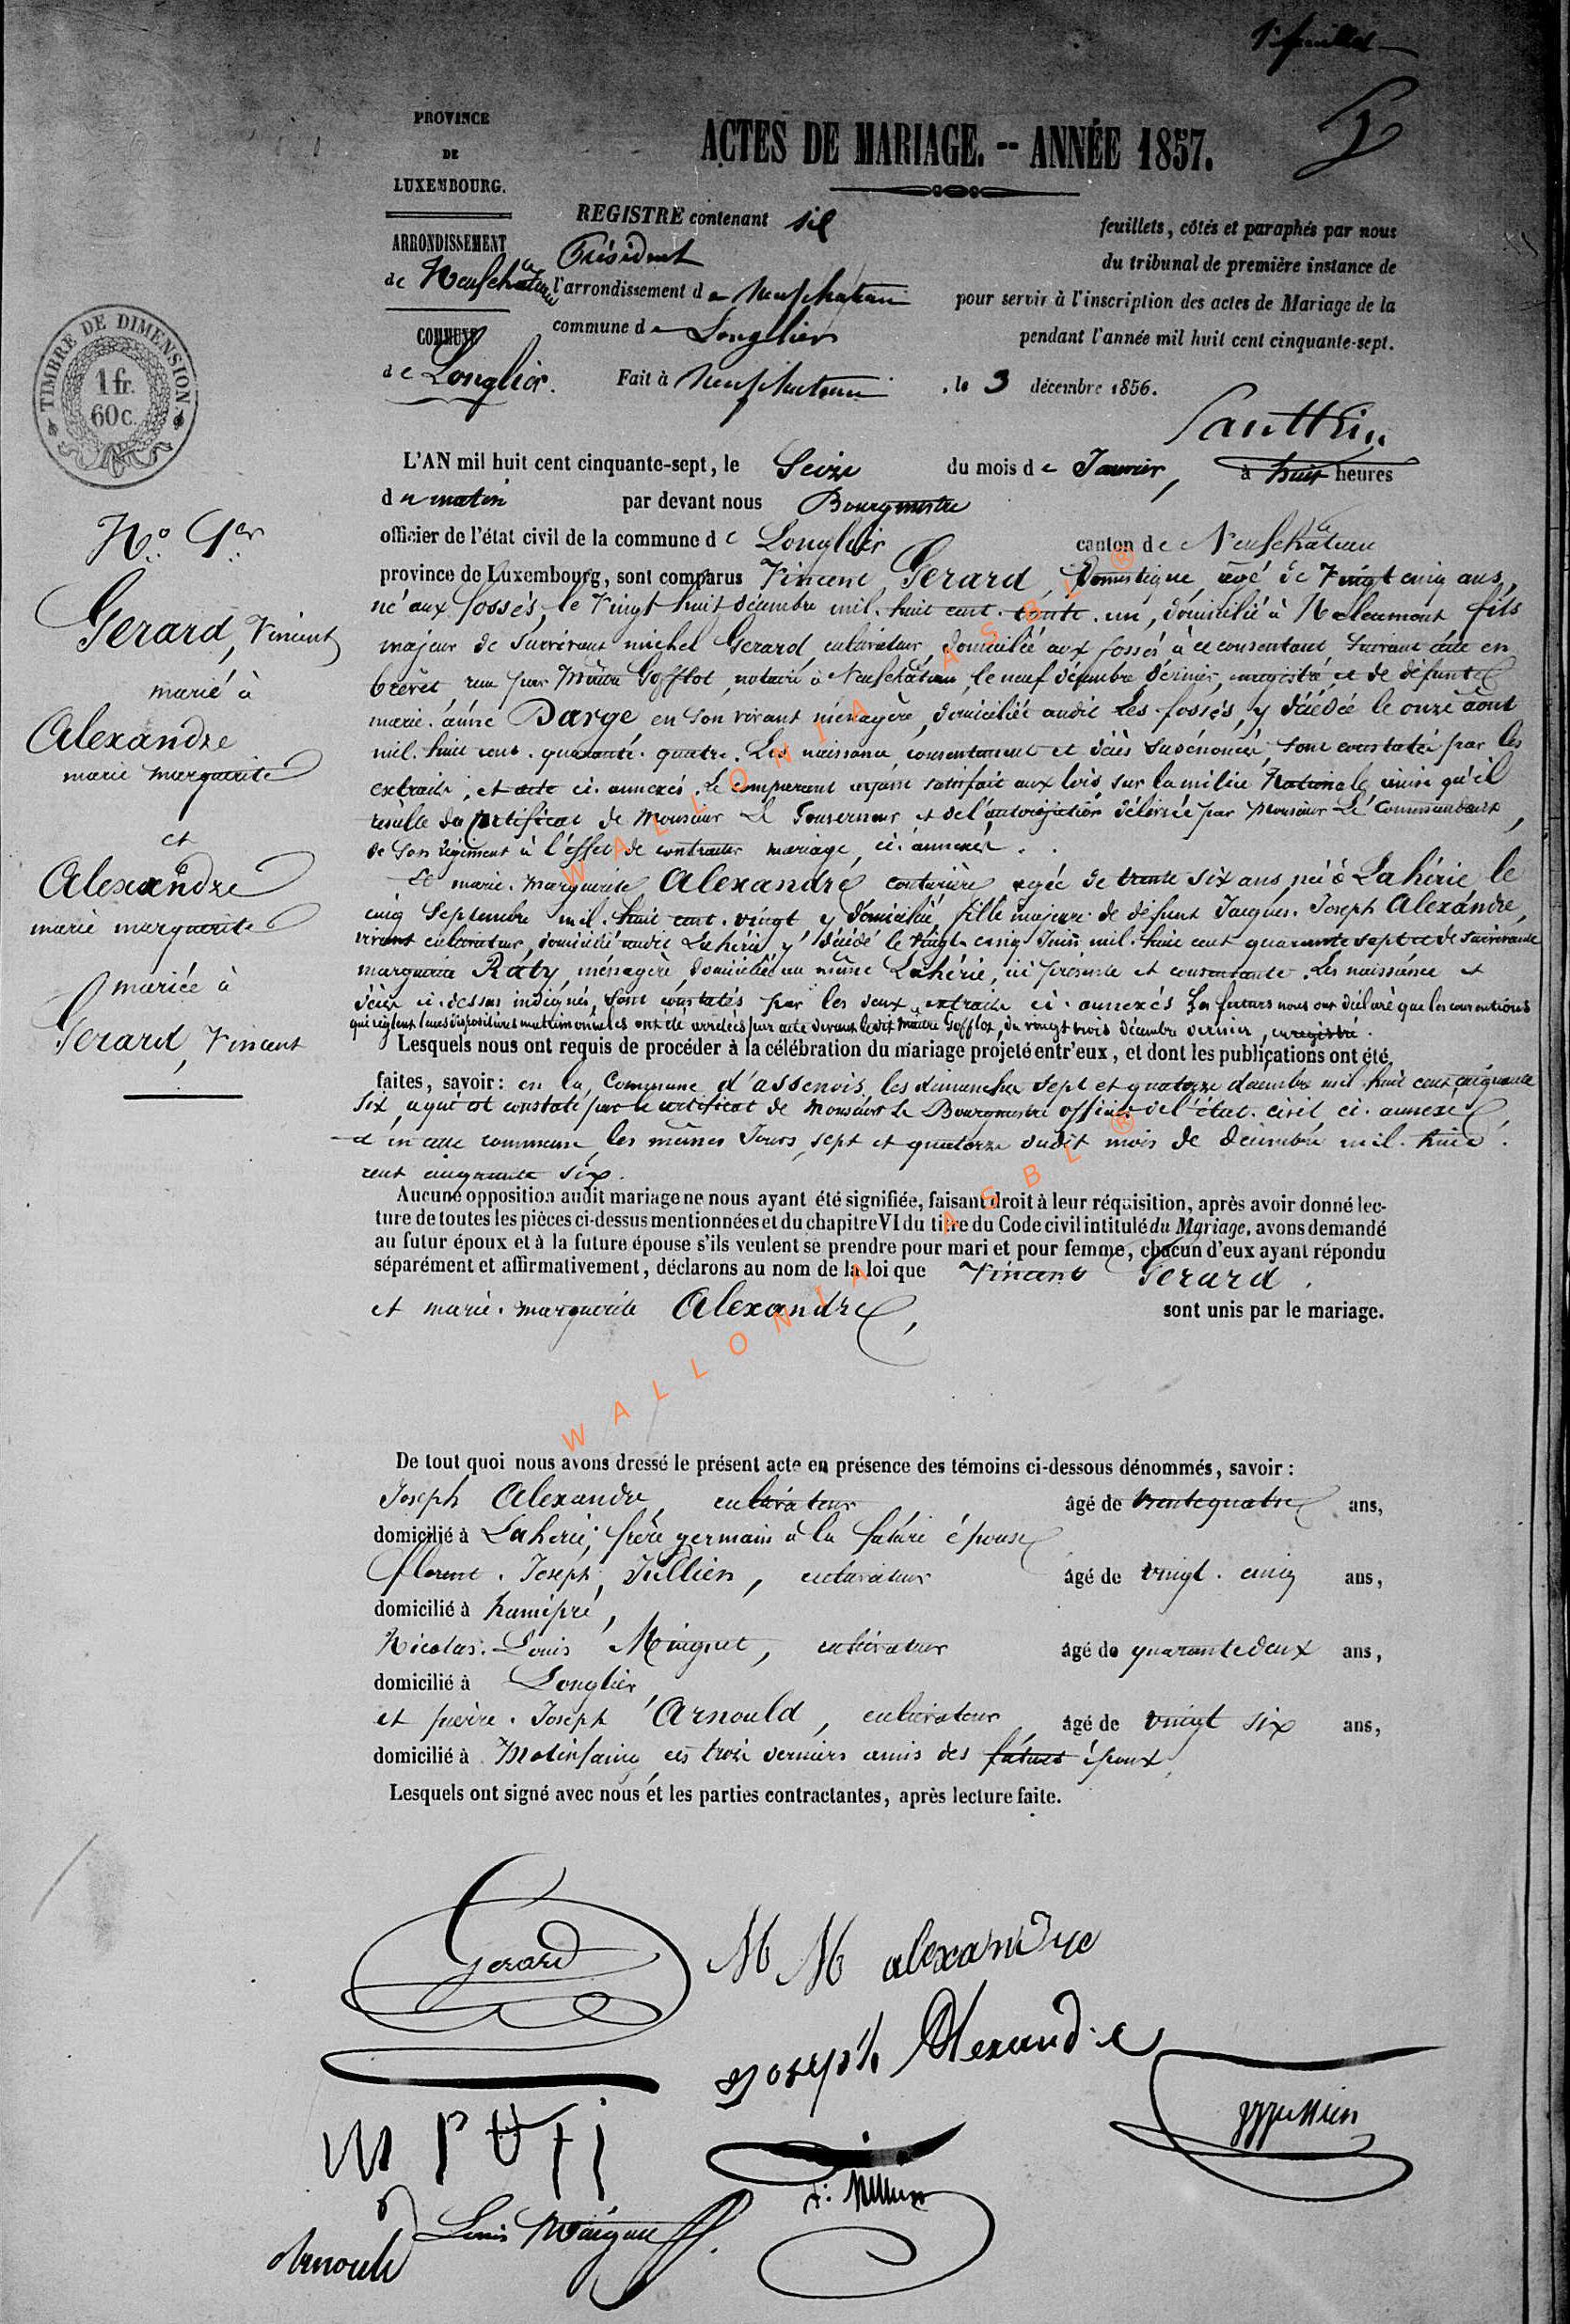 1er feuillet
PROVINCE
DE
LUXEMBOURG.
ACTES DE MARIAGE. -- ANNÉE 1857.
REGISTRE contenant six feuillets, côtés et paraphés par nous
ARRONDISSEMENT
de Neufchâteau
Président du tribunal de première instance de
l'arrondissement de Neufchateau pour servir à l'inscription des actes de Mariage de la
COMMUNE
commune de Longlier pendant l'année mil huit cent cinquante-sept.
de Longlier.
Fait à Neufchateau, le 3 décembre 1856.
TIMBRE DE DIMENSION
1 fr.
60 c.
L'AN mil huit cent cinquante-sept, le Seize du mois de Janvier, à huit heures
du matin par devant nous Bourgmestre
officier de l'état civil de la commune de Longlier canton de Neufchâteau
N.o 1er
Gerard, Vincent
marié à
Alexandre
marie marguerite
et
Alexandre
marie marguerite
mariée à
Gerard, Vincent
province de Luxembourg, sont comparus Vincent Gerard, Domestique, âgé de Vingt cinq ans,
né aux fossés, le Vingt huit décembre mil. huit cent. trente. un, domicilié à Molleumont fils
majeur de Survivant michel Gerard, cultivateur, domicilié aux fossés à ce consentant suivant acte en
brévet, reçu par Maître Gofflot, notaire à Neufchâteau, le neuf décembre dernier, enregistré, et de défunte
marie. anne Darge en son vivant ménagère, domiciliée audit Les fossés, y décédée le onze août
mil. huit cent. quarante. quatre. Les naissance, consentement et décès susénoncés, sont constatés par les
extraits, et acte ci. annexés. Le comparant ayant satisfait aux lois sur la milice Nationale ainsi qu'il
résulte du certificat de Monsieur Le Gouverneur et de l'autorisation délivrée par Monsieur Le Commandant,
de son régiment à l'effet de contracter mariage, ci. annexés.
Et marie. marguerite Alexandre couturière agée de trente six ans, née à Lahérie, le
cinq Septembre mil. huit cent. vingt y domiciliée, fille majeure de défunt Jacques. Joseph Alexandre,
vivant cultivateur, domicilié audit Lahérie y décédé le Vingt cinq Juin mil. huit cent quarante sept et de survivante
marguerite Râty, ménagère, domiciliée au même Lahérie, ici présente et consentante. Les naissance et
décès ci. dessus indiqués, sont constatés par les deux extraits ci. annexés Les futurs nous ont déclaré que les conventions
qui règlent leurs dispositions matrimoniales ont été arrêtées par acte devant le dit maître Gofflot, du vingt trois décembre dernier, enregistré.
Lesquels nous ont requis de procéder à la célébration du mariage projeté entr'eux, et dont les publications ont été
faites, savoir: en la Commune d'assenois les dimanches sept et quatorze décembre mil. huit cent cinquante
Six, ce qui est constaté par le certificat de Monsieur Le Bourgmestre officier de l'état. civil, ci. annexé
et en cette commune, les mêmes Jours, sept et quatorze dudit mois de décembre mil. huit.
cent cinquante six.
Aucune opposition audit mariage ne nous ayant été signifiée, faisant droit à leur réquisition, après avoir donné lec-
ture de toutes les pièces ci-dessus mentionnées et du chapitre VI du titre du Code civil intitulé du Mariage, avons demandé
au futur époux et à la future épouse s'ils veulent se prendre pour mari et pour femme, chacun d'eux ayant répondu
séparément et affirmativement, déclarons au nom de la loi que Vincent Gerard.
et marie. marguerite Alexandre, sont unis par le mariage.
De tout quoi nous avons dressé le présent acte en présence des témoins ci-dessous dénommés, savoir :
Joseph Alexandre, cultivateur âgé de trente quatre ans,
domicilié à Laherie, frère germain à la future épouse
florent. Joseph, Jullien, cultivateur âgé de vingt. cinq ans,
domicilié à hamipré,
Nicolas. Louis Maignet, cultivateur âgé de quarante deux ans,
domicilié à Longlier,
et pierre. Joseph Arnould, cultivateur âgé de vingt six ans,
domicilié à Molinfaing, ces trois derniers amis des futurs époux
Lesquels ont signé avec nous et les parties contractantes, après lecture faite.
Gerard
M M alexandre
Joseph Alexandre
Louis Maignet
Arnould
WALLONIA ASBL ®
WALLONIA ASBL ®